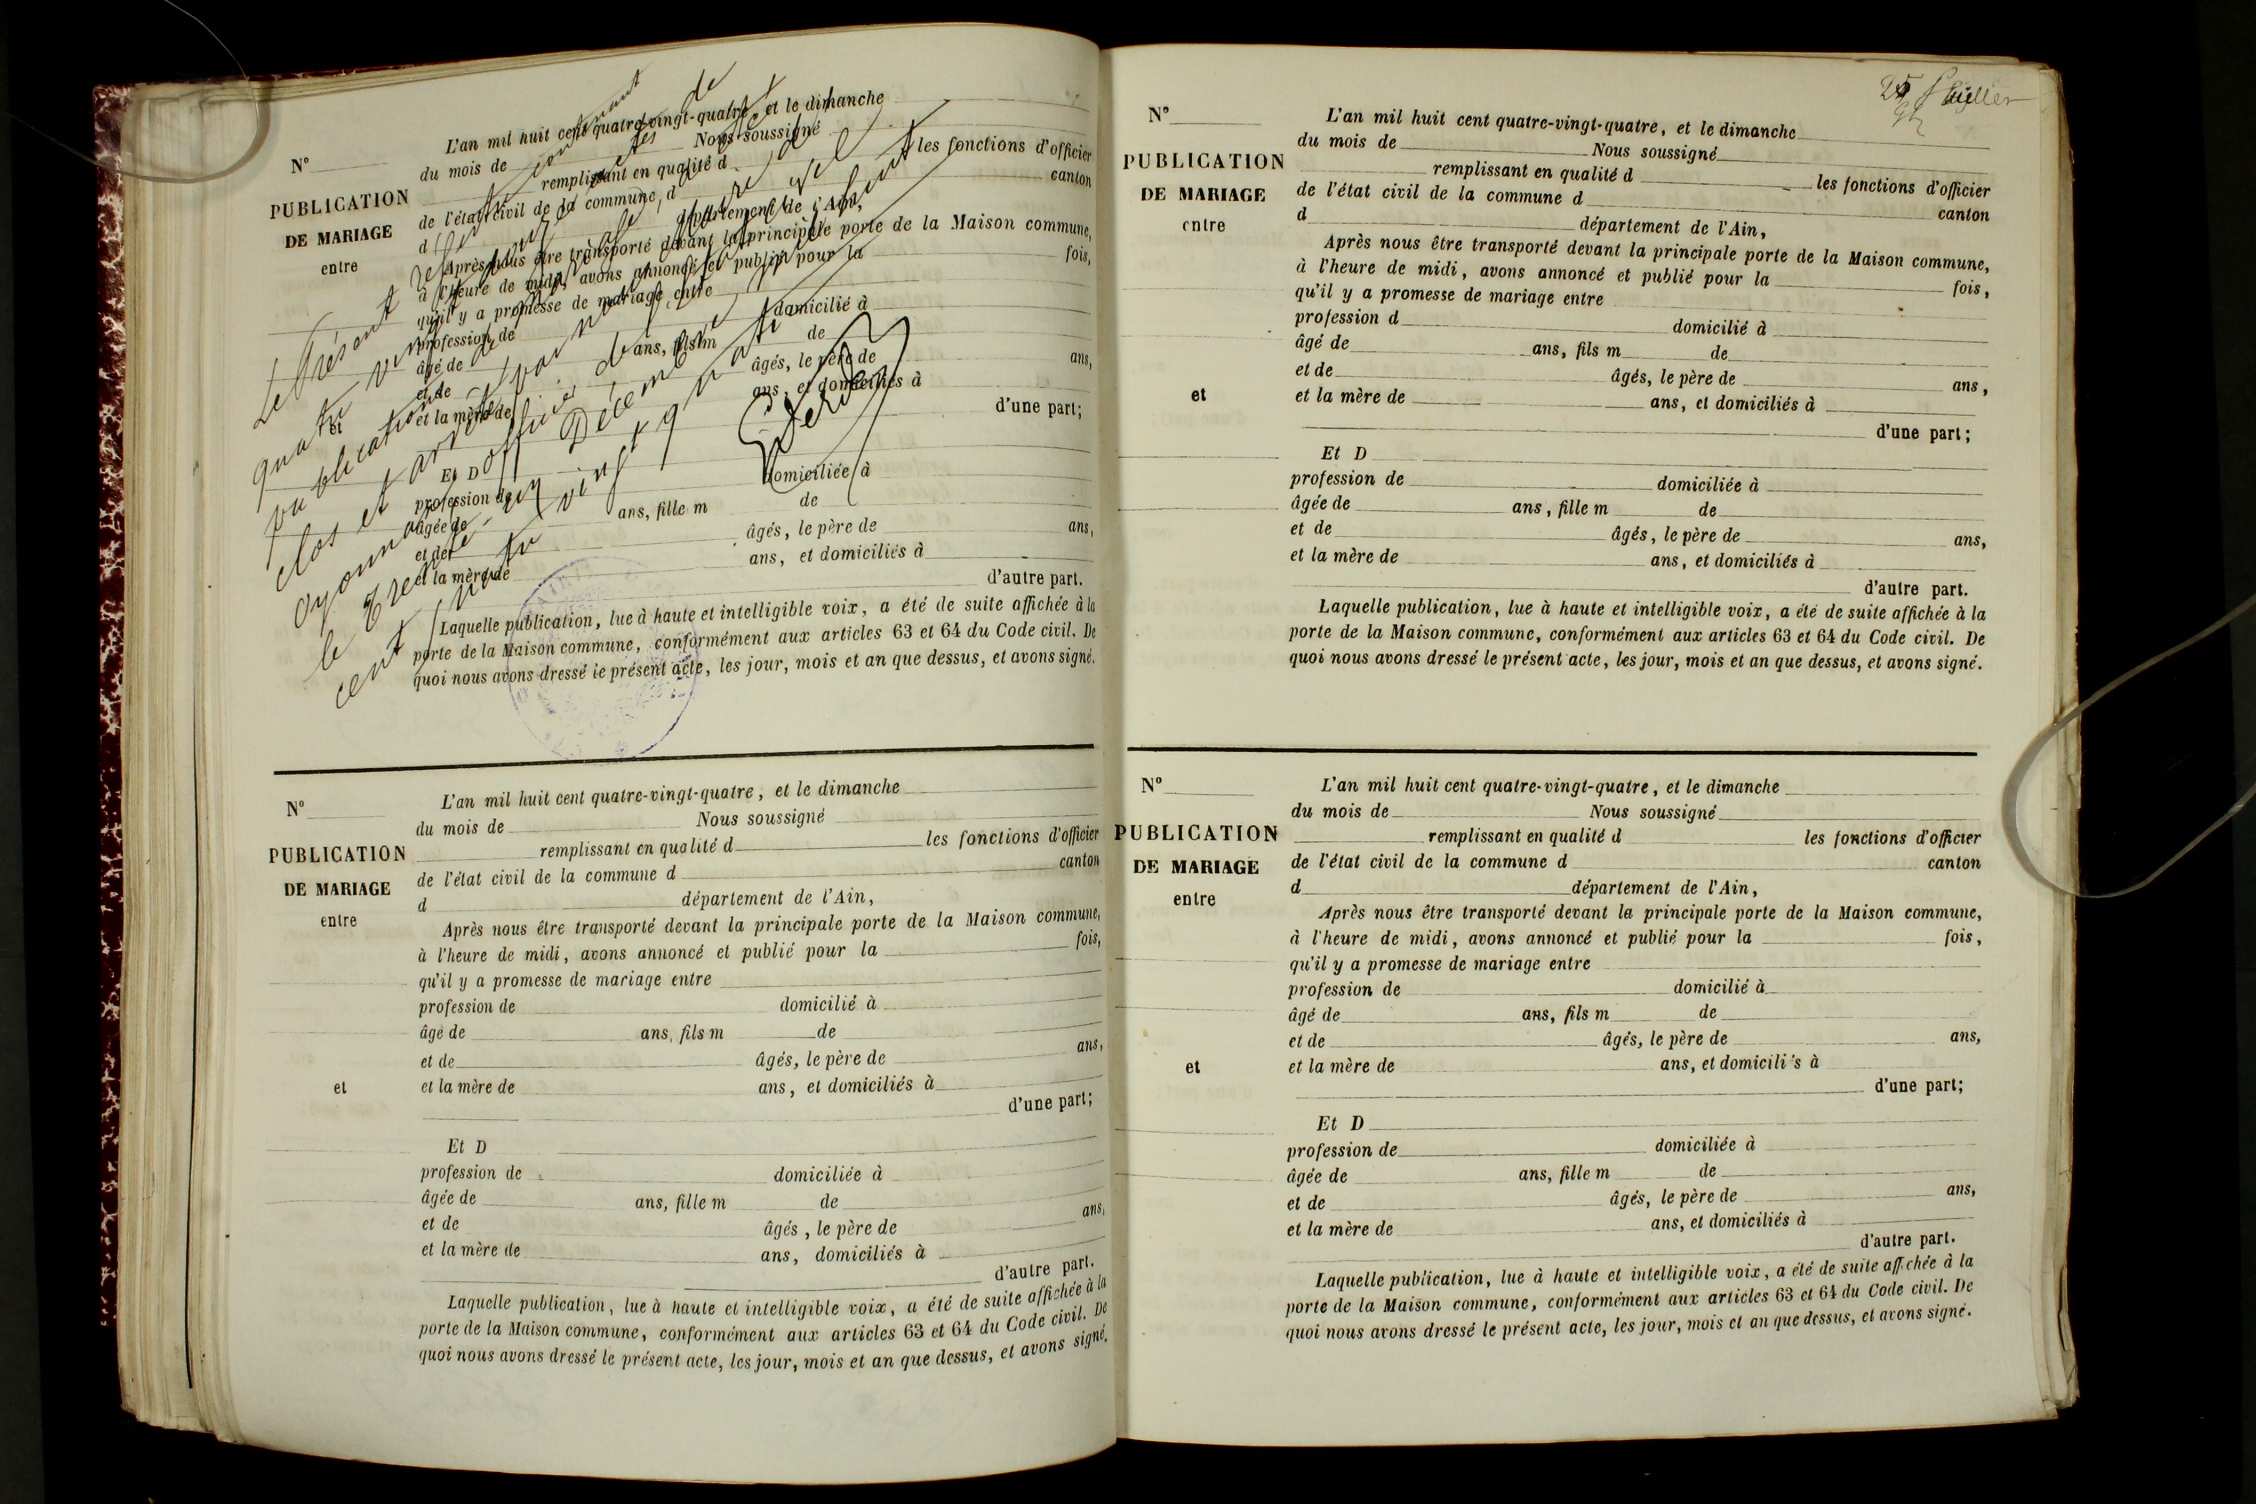 N°
PUBLICATION
DE MARIAGE
entre
et
L'an mil huit cent quatre-vingt-quatre, et le dimanche
du mois de Nous soussigné
remplissant en qualité d les fonctions d'officier
de l'état civil de la commune d canton
d département de l'Ain,
Après nous être transporté devant la principale porte de la Maison commune,
à l'heure de midi, avons annoncé et publié pour la fois,
qu'il y a promesse de mariage entre
profession de domicilié à
âgé de ans, fils m de
et de âgés, le père de ans,
et la mère de ans, et domiciliés à
d'une part;
Et D
profession de domiciliée à
âgée de ans, fille m de
et de âgés, le père de ans,
et la mère de ans, et domiciliés à
d'autre part.
Laquelle publication, lue à haute et intelligible voix, a été de suite affichée à la
porte de la Maison commune, conformément aux articles 63 et 64 du Code civil. De
quoi nous avons dressé le présent acte, les jour, mois et an que dessus, et avons signé.
Le Présent contenant
quatre vingt de
publications
clos et arrêté par nous
oyonnax officier de
le trente-un Décembre
cent quatre vingt quatre
N°
PUBLICATION
DE MARIAGE
entre
et
L'an mil huit cent quatre-vingt-quatre, et le dimanche
du mois de Nous soussigné
remplissant en qualité d les fonctions d'officier
de l'état civil de la commune d canton
d département de l'Ain,
Après nous être transporté devant la principale porte de la Maison commune,
à l'heure de midi, avons annoncé et publié pour la fois,
qu'il y a promesse de mariage entre
profession de domicilié à
âgé de ans, fils m de
et de âgés, le père de ans,
et la mère de ans, et domiciliés à
d'une part;
Et D
profession de domiciliée à
âgée de ans, fille m de
et de âgés, le père de ans,
et la mère de ans, domiciliés à
d'autre part.
Laquelle publication, lue à haute et intelligible voix, a été de suite affichée à la
porte de la Maison commune, conformément aux articles 63 et 64 du Code civil. De
quoi nous avons dressé le présent acte, les jour, mois et an que dessus, et avons signé.
N°
PUBLICATION
DE MARIAGE
entre
et
L'an mil huit cent quatre-vingt-quatre, et le dimanche
du mois de Nous soussigné
remplissant en qualité d les fonctions d'officier
de l'état civil de la commune d canton
d département de l'Ain,
Après nous être transporté devant la principale porte de la Maison commune,
à l'heure de midi, avons annoncé et publié pour la fois,
qu'il y a promesse de mariage entre
profession d domicilié à
âgé de ans, fils m de
et de âgés, le père de ans,
et la mère de ans, et domiciliés à
d'une part;
Et D
profession de domiciliée à
âgée de ans, fille m de
et de âgés, le père de ans,
et la mère de ans, et domiciliés à
d'autre part.
Laquelle publication, lue à haute et intelligible voix, a été de suite affichée à la
porte de la Maison commune, conformément aux articles 63 et 64 du Code civil. De
quoi nous avons dressé le présent acte, les jour, mois et an que dessus, et avons signé.
N°
PUBLICATION
DE MARIAGE
entre
et
L'an mil huit cent quatre-vingt-quatre, et le dimanche
du mois de Nous soussigné
remplissant en qualité d les fonctions d'officier
de l'état civil de la commune d canton
d département de l'Ain,
Après nous être transporté devant la principale porte de la Maison commune,
à l'heure de midi, avons annoncé et publié pour la fois,
qu'il y a promesse de mariage entre
profession de domicilié à
âgé de ans, fils m de
et de âgés, le père de ans,
et la mère de ans, et domicili's à
d'une part;
Et D
profession de domiciliée à
âgée de ans, fille m de
et de âgés, le père de ans,
et la mère de ans, et domiciliés à
d'autre part.
Laquelle publication, lue à haute et intelligible voix, a été de suite affichée à la
porte de la Maison commune, conformément aux articles 63 et 64 du Code civil. De
quoi nous avons dressé le présent acte, les jour, mois et an que dessus, et avons signé.